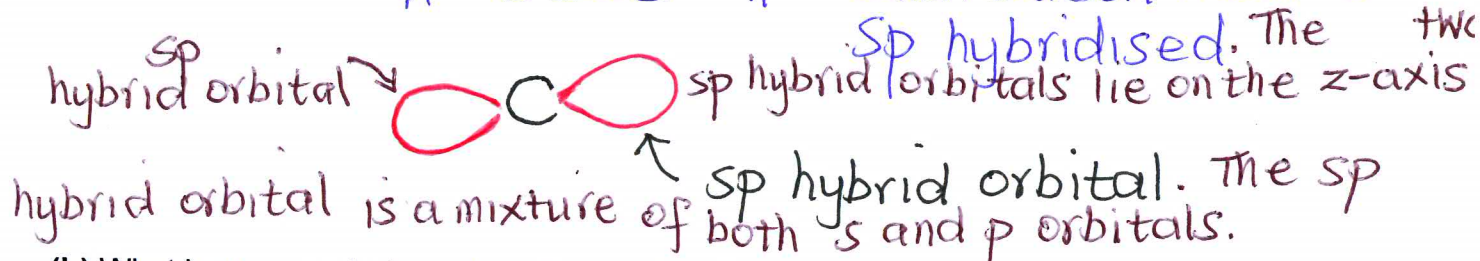 sp hybridised. The two
sp
hybrid orbital C sp hybrid orbitals lie on the z-axis
sp hybrid orbital. The sp
hybrid orbital is a mixture of both s and p orbitals.